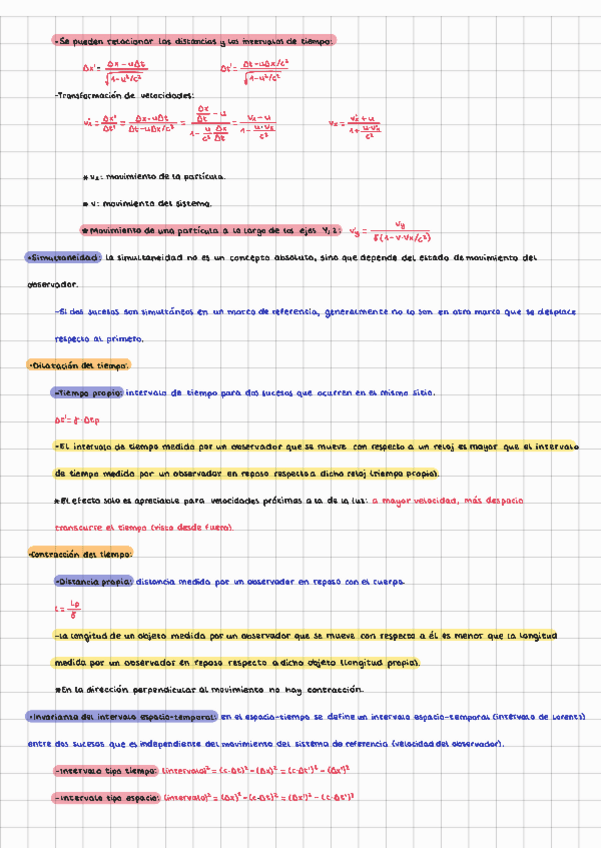 -Se pueden relacionar las distancias y los intervalos de tiempo:
Δx' = (Δx - uΔt) / √(1-u²/c²)    Δt' = (Δt - uΔx/c²) / √(1-u²/c²)
-Transformación de velocidades:
v'x = Δx'/Δt' = (Δx-uΔt)/(Δt-uΔx/c²) = (Δx/Δt - u)/(1 - u/c² Δx/Δt) = (vx-u)/(1 - u·vx/c²)    vx = (v'x+u)/(1 + u·v'x/c²)
* vx: movimiento de la partícula.
* v: movimiento del sistema.
* Movimiento de una partícula a lo largo de los ejes Y, Z: v'y = vy / (γ(1-v·vx/c²))
•Simultaneidad: la simultaneidad no es un concepto absoluto, sino que depende del estado de movimiento del
observador.
-Si dos sucesos son simultáneos en un marco de referencia, generalmente no lo son en otro marco que se desplace
respecto al primero.
•Dilatación del tiempo:
-Tiempo propio: intervalo de tiempo para dos sucesos que ocurren en el mismo sitio.
Δt' = γ · Δtp
-El intervalo de tiempo medido por un observador que se mueve con respecto a un reloj es mayor que el intervalo
de tiempo medido por un observador en reposo respecto a dicho reloj (tiempo propio).
*El efecto solo es apreciable para velocidades próximas a la de la luz: a mayor velocidad, más despacio
transcurre el tiempo (visto desde fuera).
•Contracción del tiempo:
-Distancia propia: distancia medida por un observador en reposo con el cuerpo.
L = Lp/γ
-La longitud de un objeto medida por un observador que se mueve con respecto a él es menor que la longitud
medida por un observador en reposo respecto a dicho objeto (longitud propia).
*En la dirección perpendicular al movimiento no hay contracción.
•Invarianza del intervalo espacio-temporal: en el espacio-tiempo se define un intervalo espacio-temporal (intervalo de Lorentz)
entre dos sucesos que es independiente del movimiento del sistema de referencia (velocidad del observador).
-Intervalo tipo tiempo: (intervalo)² = (c·Δt)² - (Δx)² = (c·Δt')² - (Δx')²
-Intervalo tipo espacio: (intervalo)² = (Δx)² - (c·Δt)² = (Δx')² - (c·Δt')²